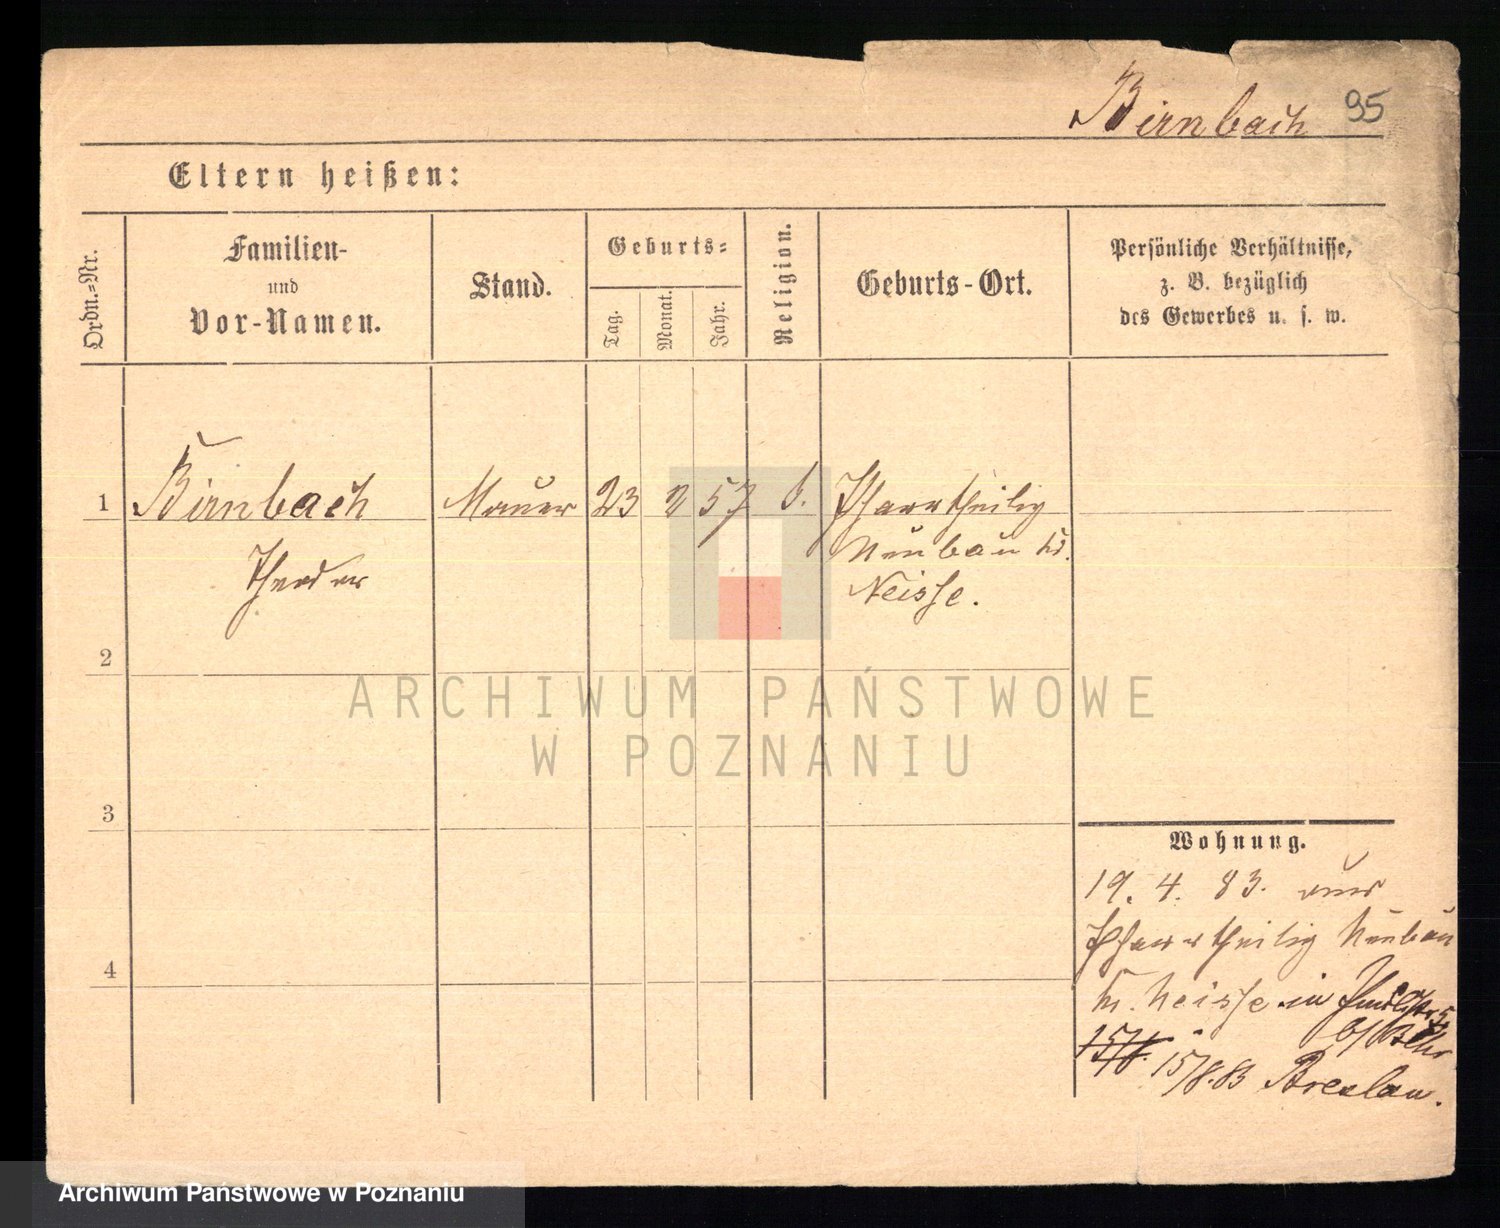 Birnbach 95
Eltern heißen:
Ordn.-Nr.
Familien-
und
Vor-Namen.
Stand.
Geburts-
Tag.
Monat.
Jahr.
Religion.
Geburts-Ort.
Persönliche Verhältnisse,
z. B. bezüglich
des Gewerbes u. s. w.
1 Birnbach Maurer 23 2 57 k. Pfarrtheilig
Neubau Kr.
Theodor
Neisse.
2
3
4
ARCHIWUM PAŃSTWOWE
W POZNANIU
Wohnung.
19. 4. 83. aus
Pfarrtheilig Neubau
Kr. Neisse in
15/8. 15/8.83 Breslau.
Archiwum Państwowe w Poznaniu